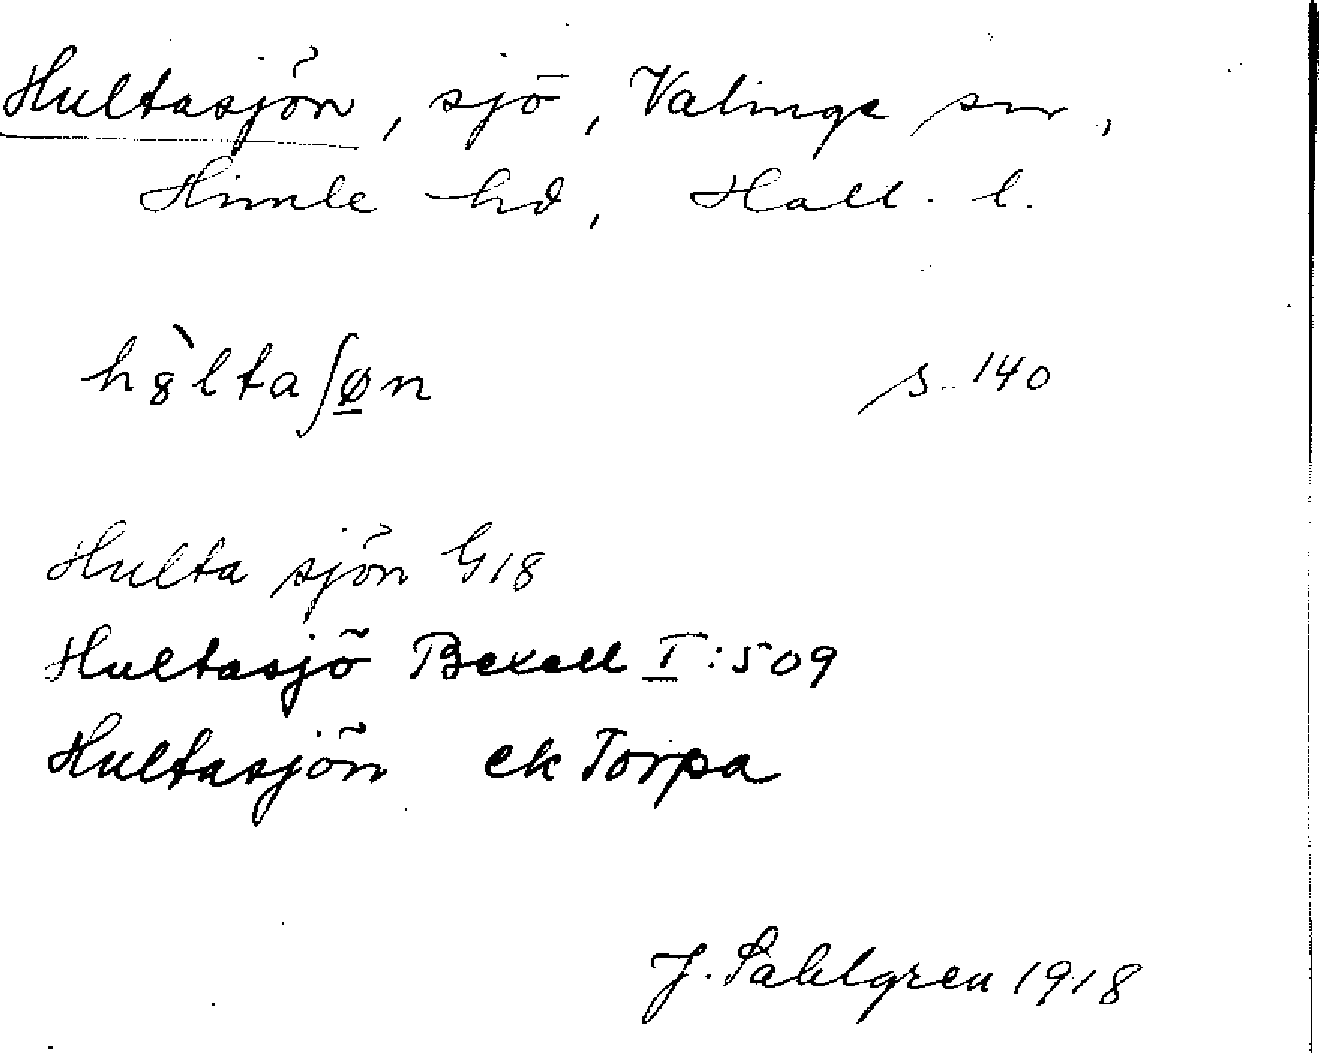 Hultasjön, sjö, Valinge sn,
Himle hd, Hall. l.
hȣ̀ltaʃø̲n s. 140
Hulta sjön G18
Hultasjö Bexell I:509
Hultasjön ek Torpa
J. Sahlgren 1918